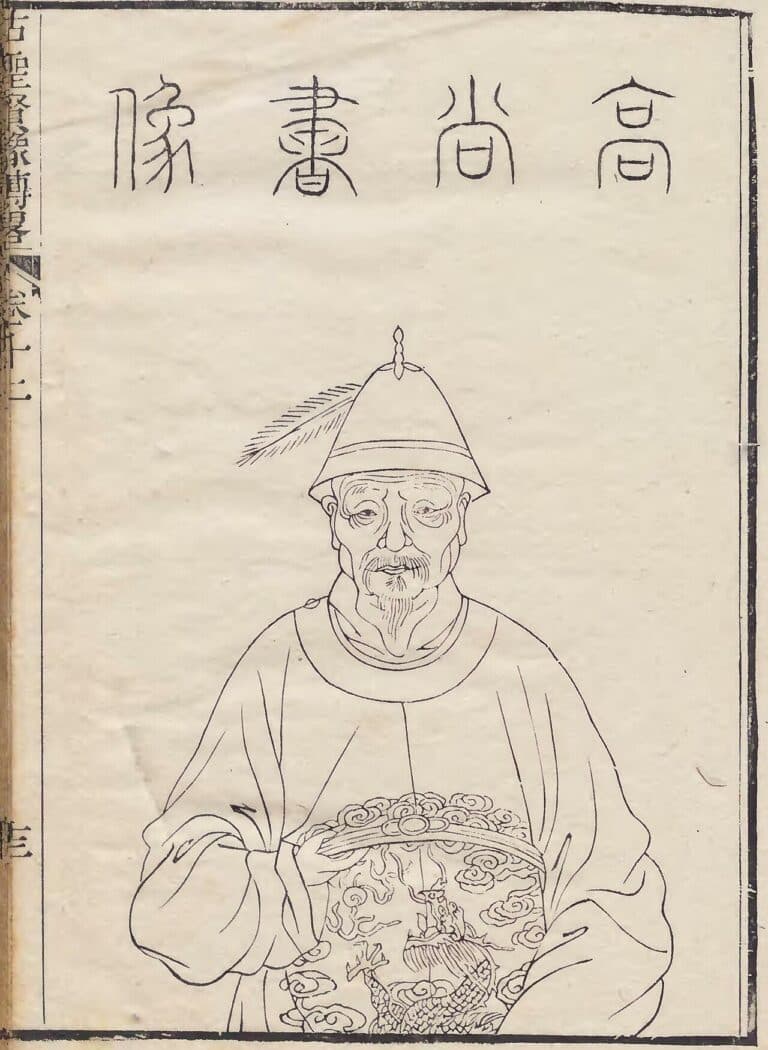 高尚書像
古聖賢像傳畧 卷十二